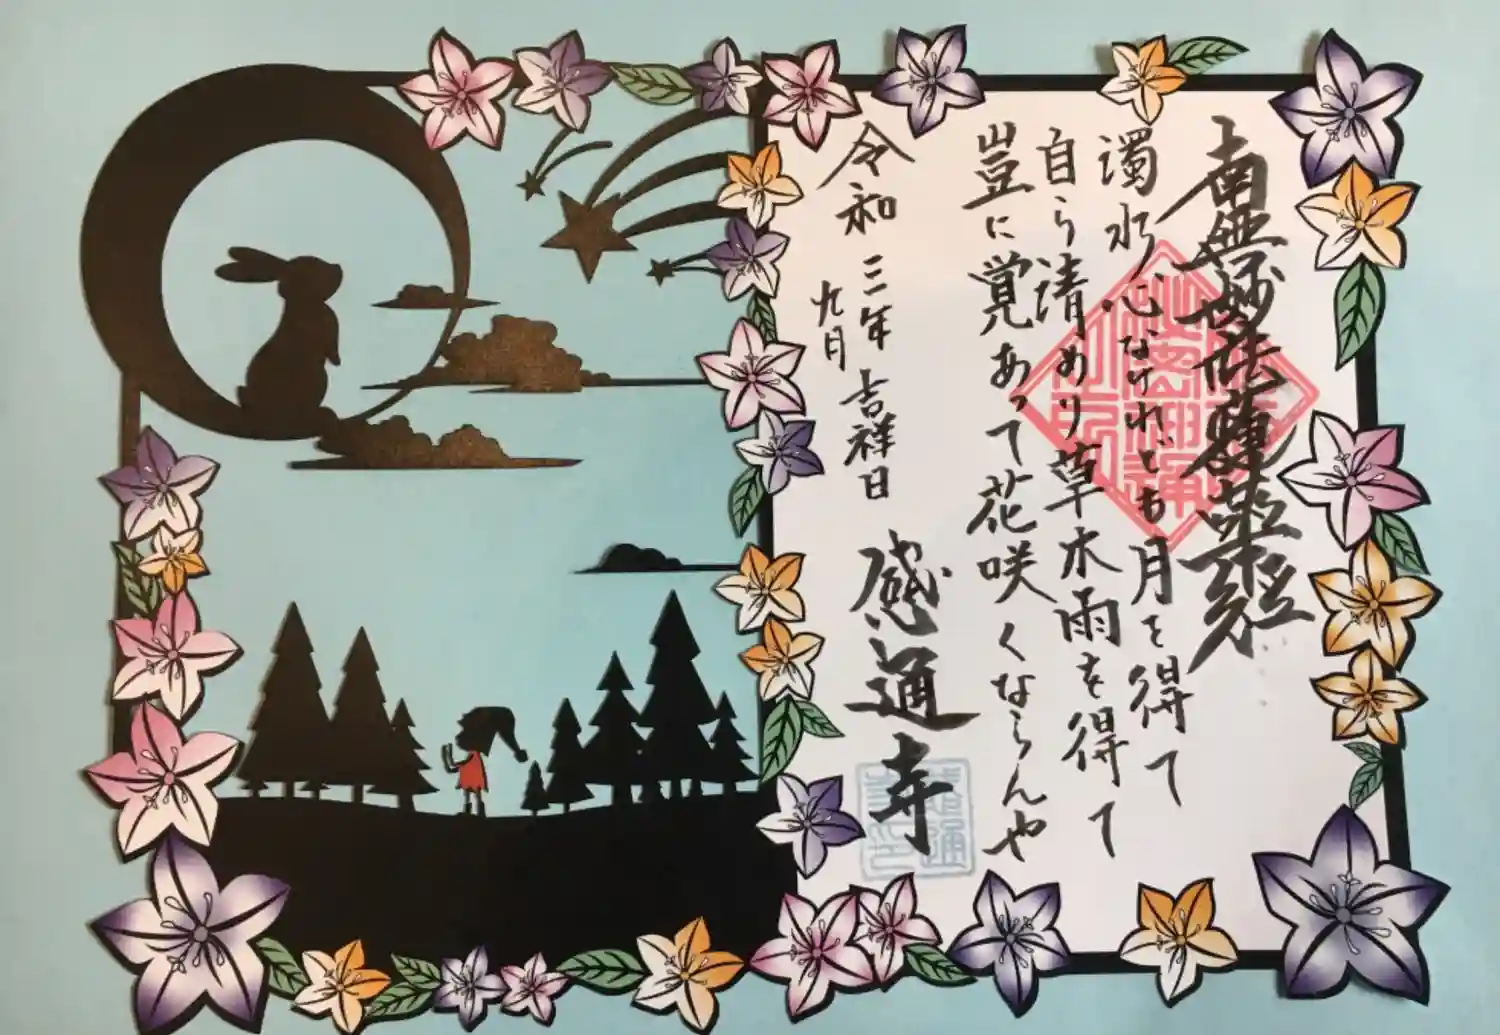 南無妙法蓮華経
濁水心なけれども月を得て
自ら清めり草木雨を得て
豈に覚あって花咲くならんや
令和三年九月吉祥日
感通寺